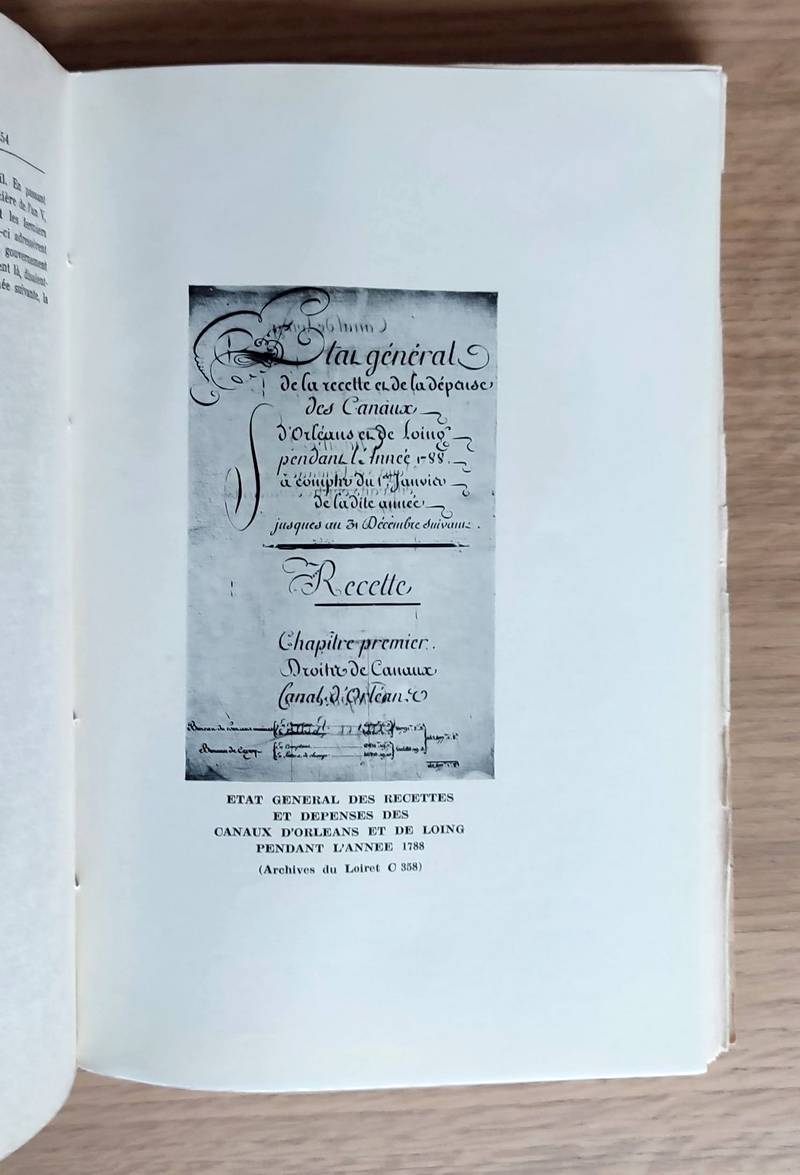 54
il. En passant
cière de l'an V,
t les fermiers
-ci adressèrent
gouvernement
ent là, disaient-
née suivante, la
Etat général
de la recette et de la dépense
des Canaux
d'Orléans et de Loing
pendant l'Année 1788.
à compter du 1er Janvier
de la dite année
jusques au 31 Décembre suivant.
Recette
Chapitre premier.
Droits de Canaux
Canal d'Orléans
ETAT GENERAL DES RECETTES
ET DEPENSES DES
CANAUX D'ORLEANS ET DE LOING
PENDANT L'ANNEE 1788
(Archives du Loiret C 358)